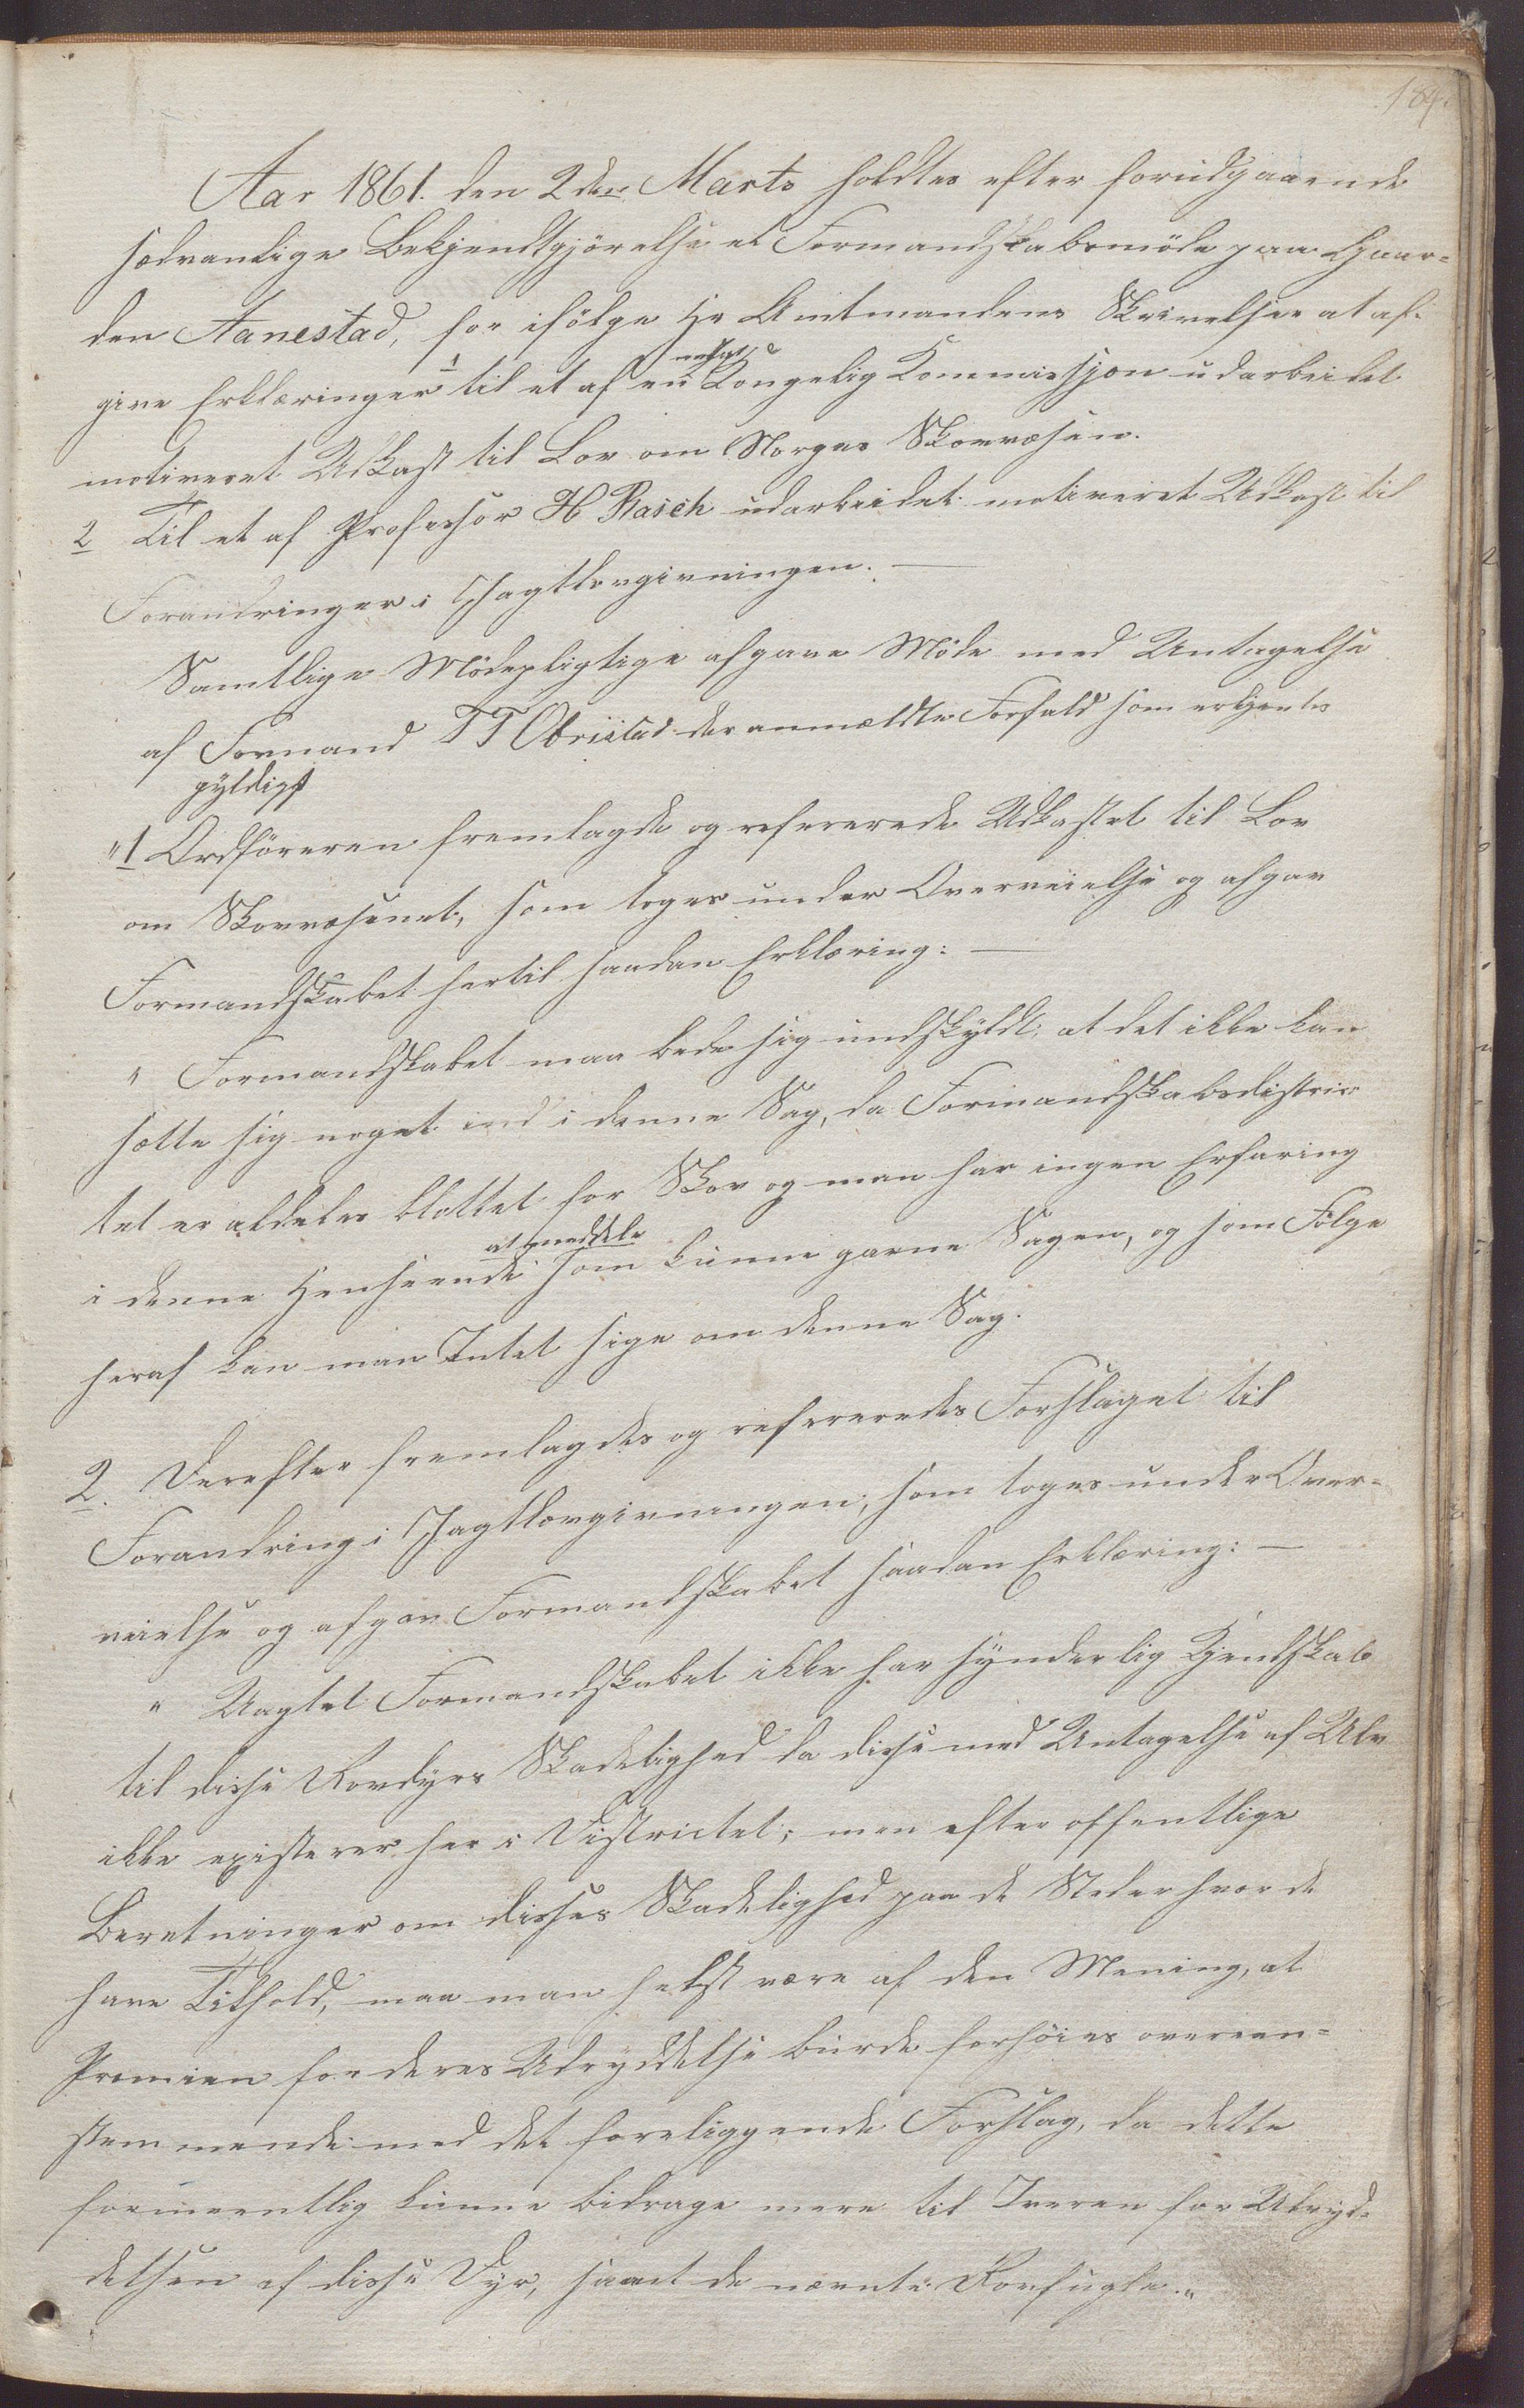 184.
Aar 1861. den 2den Marts holdtes efter forudgaaende
sædvanlige Bekjendtgjörelse et Formandskabsmöde paa Gaar-
den Aanestad, for ifölge Hr Amtmandens Skrivelser at af-
nedsat
give Erklæringer 1 til et af en Kongelig Kommissjon udarbeidet
motiveret Udkast til Lov om Norges Skovvæsen.
2 Til et af Professor H Rasch udarbeidet motiveret Udkast til
Forandringer i Jagtlovgivningen. —
Samtlige Mödepligtige afgave Möde med Untagelse
af Formand T T Obriistad der anmældte Forfald som erkjentes
gyldigt
"1 Ordföreren fremlagde og refererede Udkastet til Lov
om Skovvæsenet, som toges under Overveielse og afgav
Formandskabet hertil saadan Erklæring: —
" Formandskabet maa bede sig undskyldt, at det ikke kan
sætte sig noget ind i denne Sag, da Formandskabsdistric-
tet er aldeles blottet for Skov og man har ingen Erfaring
at meddele
i denne Henseende som kunne gavne Sagen, og som Fölge
heraf kan man Intet sige om denne Sag.
2. Derefter fremlagdes og refereredes Forslaget til
Forandring i Jagtlovgivningen, som toges under Over-
veielse og afgav Formandskabet saadan Erklæring: —
" Uagtet Formandskabet ikke har synderlig Kjendskab
til disse Rovdyrs Skadelighed da disse med Untagelse af Ulv
ikke existerer her i Districtet; men efter offentlige
Beretninger om disses Skadelighed paa de Steder hvor de
have Tilhold, maa man helst være af den Mening, at
Premien for deres Udryddelse burde forhöies overeen-
stemmende med det foreliggende Forslag, da dette
formeentlig kunne bidrage mere til Iveren for Udryd-
delsen af disse Dyr, samt de nævnte Rovfugle."